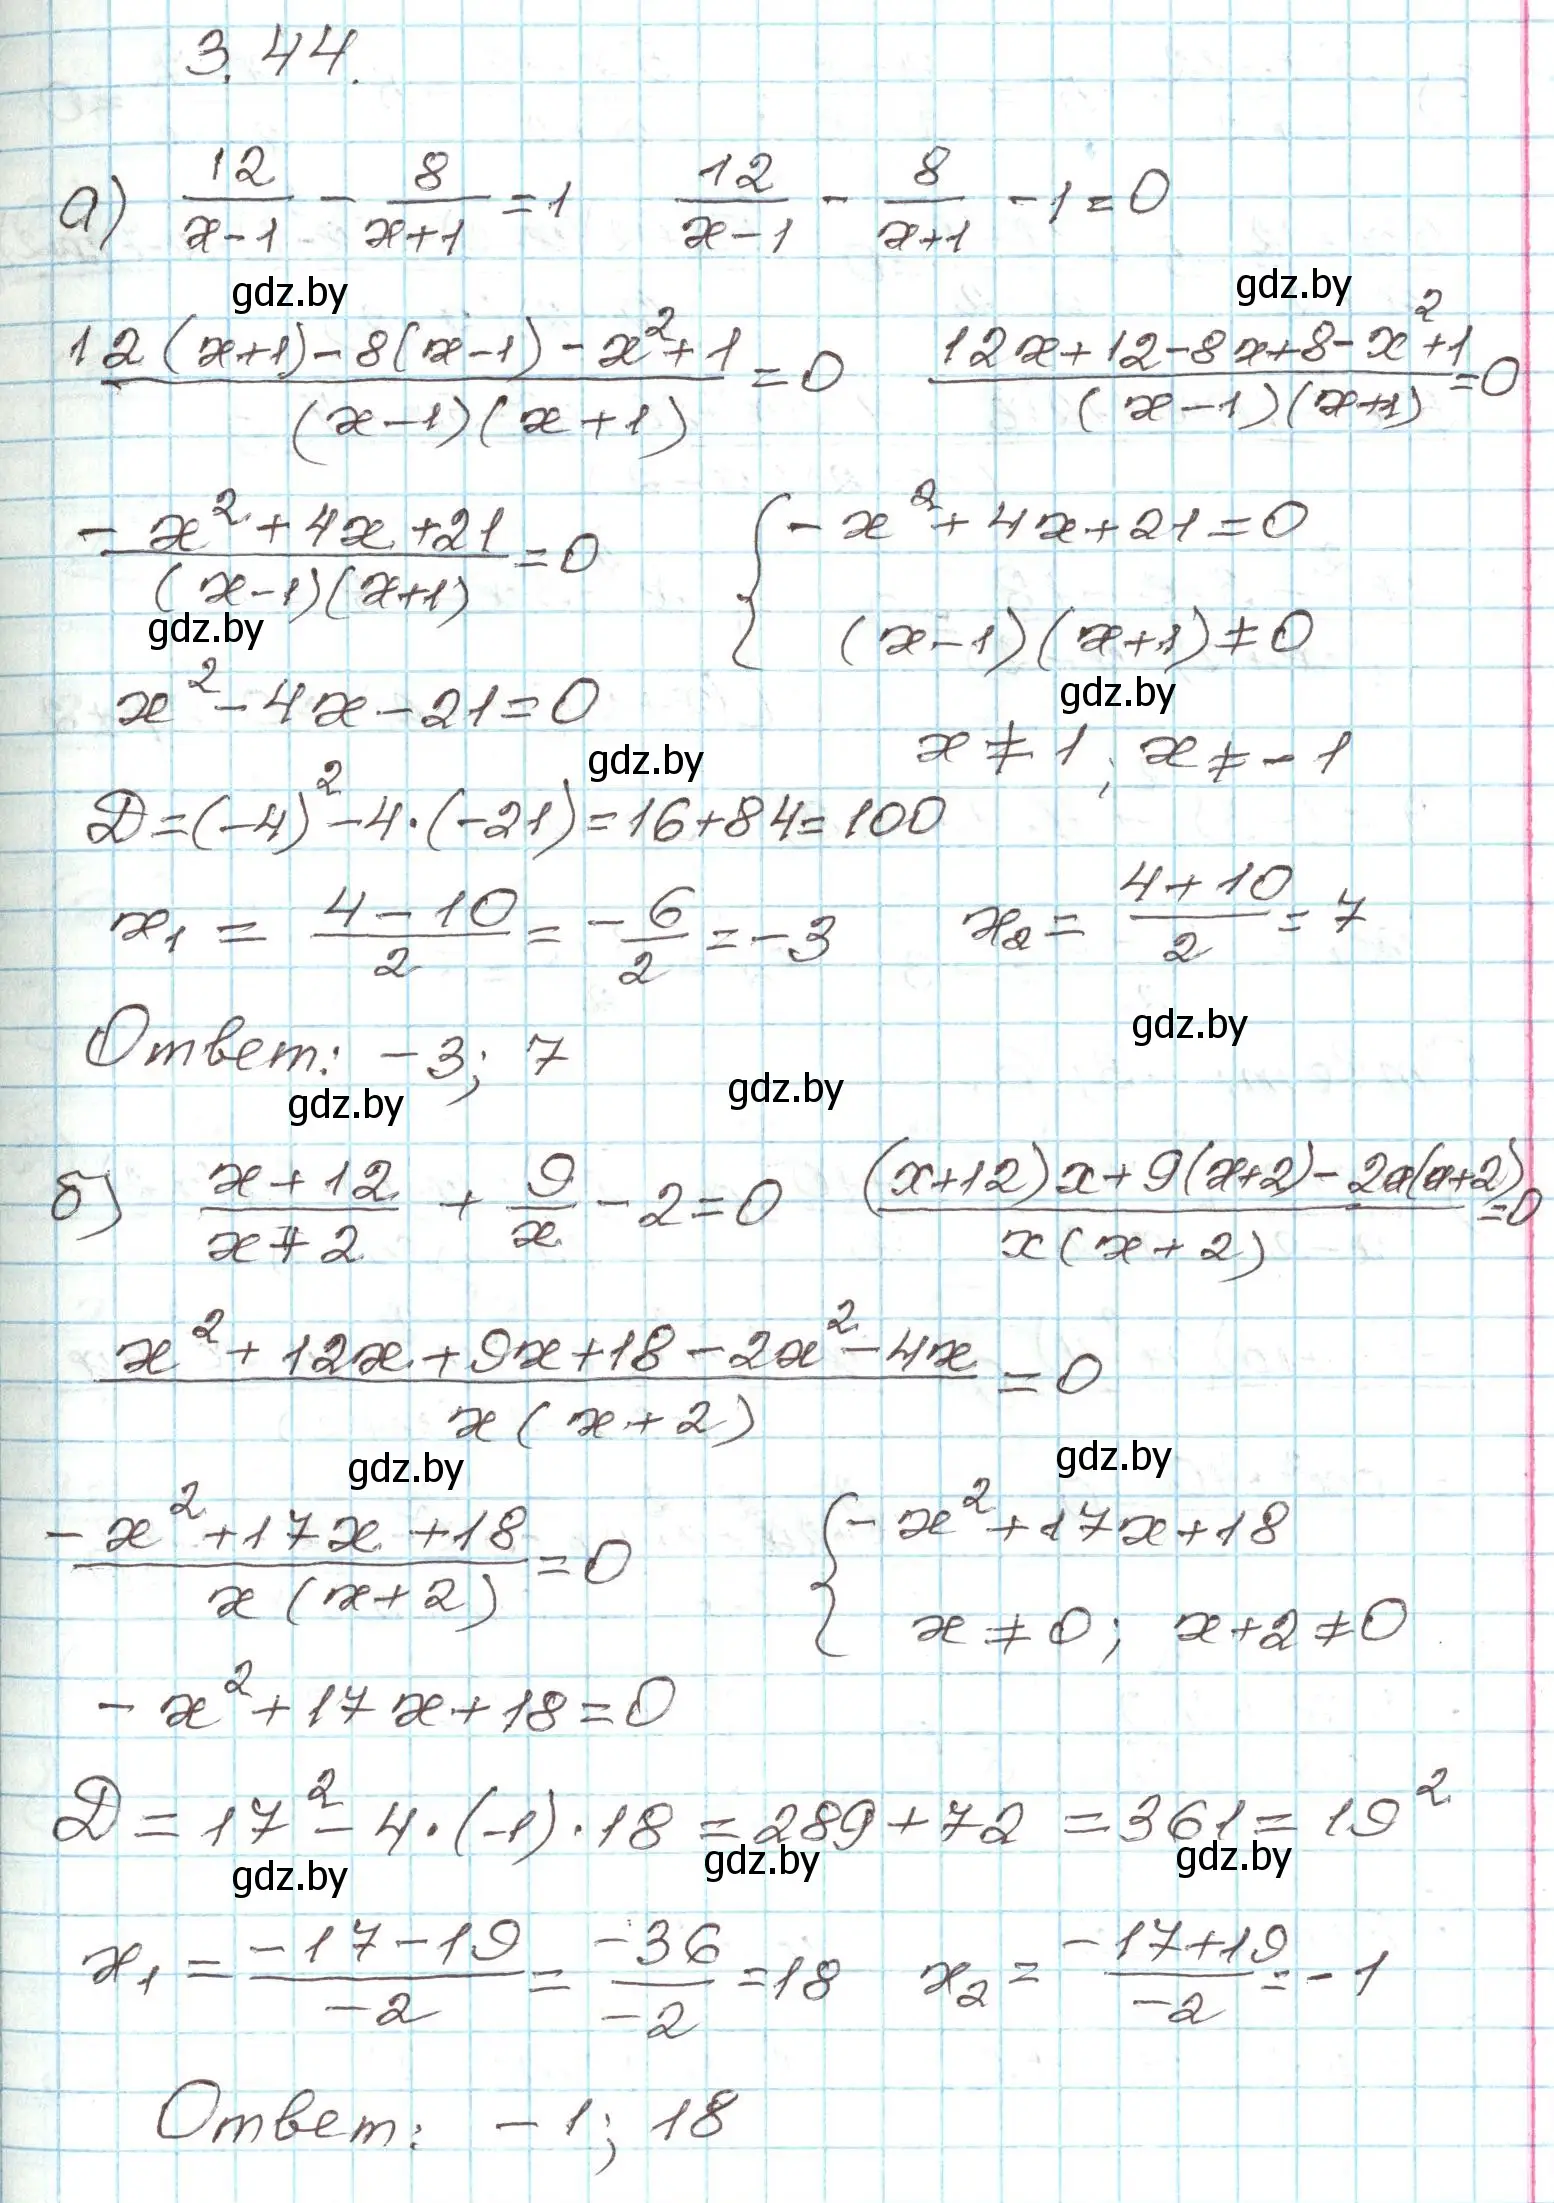 3.44.
а) 12/(x-1) - 8/(x+1) = 1    12/(x-1) - 8/(x+1) - 1 = 0
gdz.by    gdz.by
(12(x+1) - 8(x-1) - x² + 1)/((x-1)(x+1)) = 0    (12x + 12 - 8x + 8 - x² + 1)/((x-1)(x+1)) = 0
(-x² + 4x + 21)/((x-1)(x+1)) = 0    { -x² + 4x + 21 = 0
(x-1)(x+1) ≠ 0
gdz.by    gdz.by
x² - 4x - 21 = 0    x ≠ 1; x ≠ -1
gdz.by
Д = (-4)² - 4·(-21) = 16 + 84 = 100
x₁ = (4-10)/2 = -6/2 = -3    x₂ = (4+10)/2 = 7
gdz.by
Ответ: -3; 7
gdz.by    gdz.by
б) (x+12)/(x+2) + 9/x - 2 = 0    ((x+12)x + 9(x+2) - 2x(x+2))/(x(x+2)) = 0
(x² + 12x + 9x + 18 - 2x² - 4x)/(x(x+2)) = 0
gdz.by    gdz.by
(-x² + 17x + 18)/(x(x+2)) = 0    { -x² + 17x + 18
x ≠ 0; x+2 ≠ 0
-x² + 17x + 18 = 0
Д = 17² - 4·(-1)·18 = 289 + 72 = 361 = 19²
gdz.by    gdz.by    gdz.by
x₁ = (-17-19)/(-2) = (-36)/(-2) = 18    x₂ = (-17+19)/(-2) = -1
Ответ: -1; 18